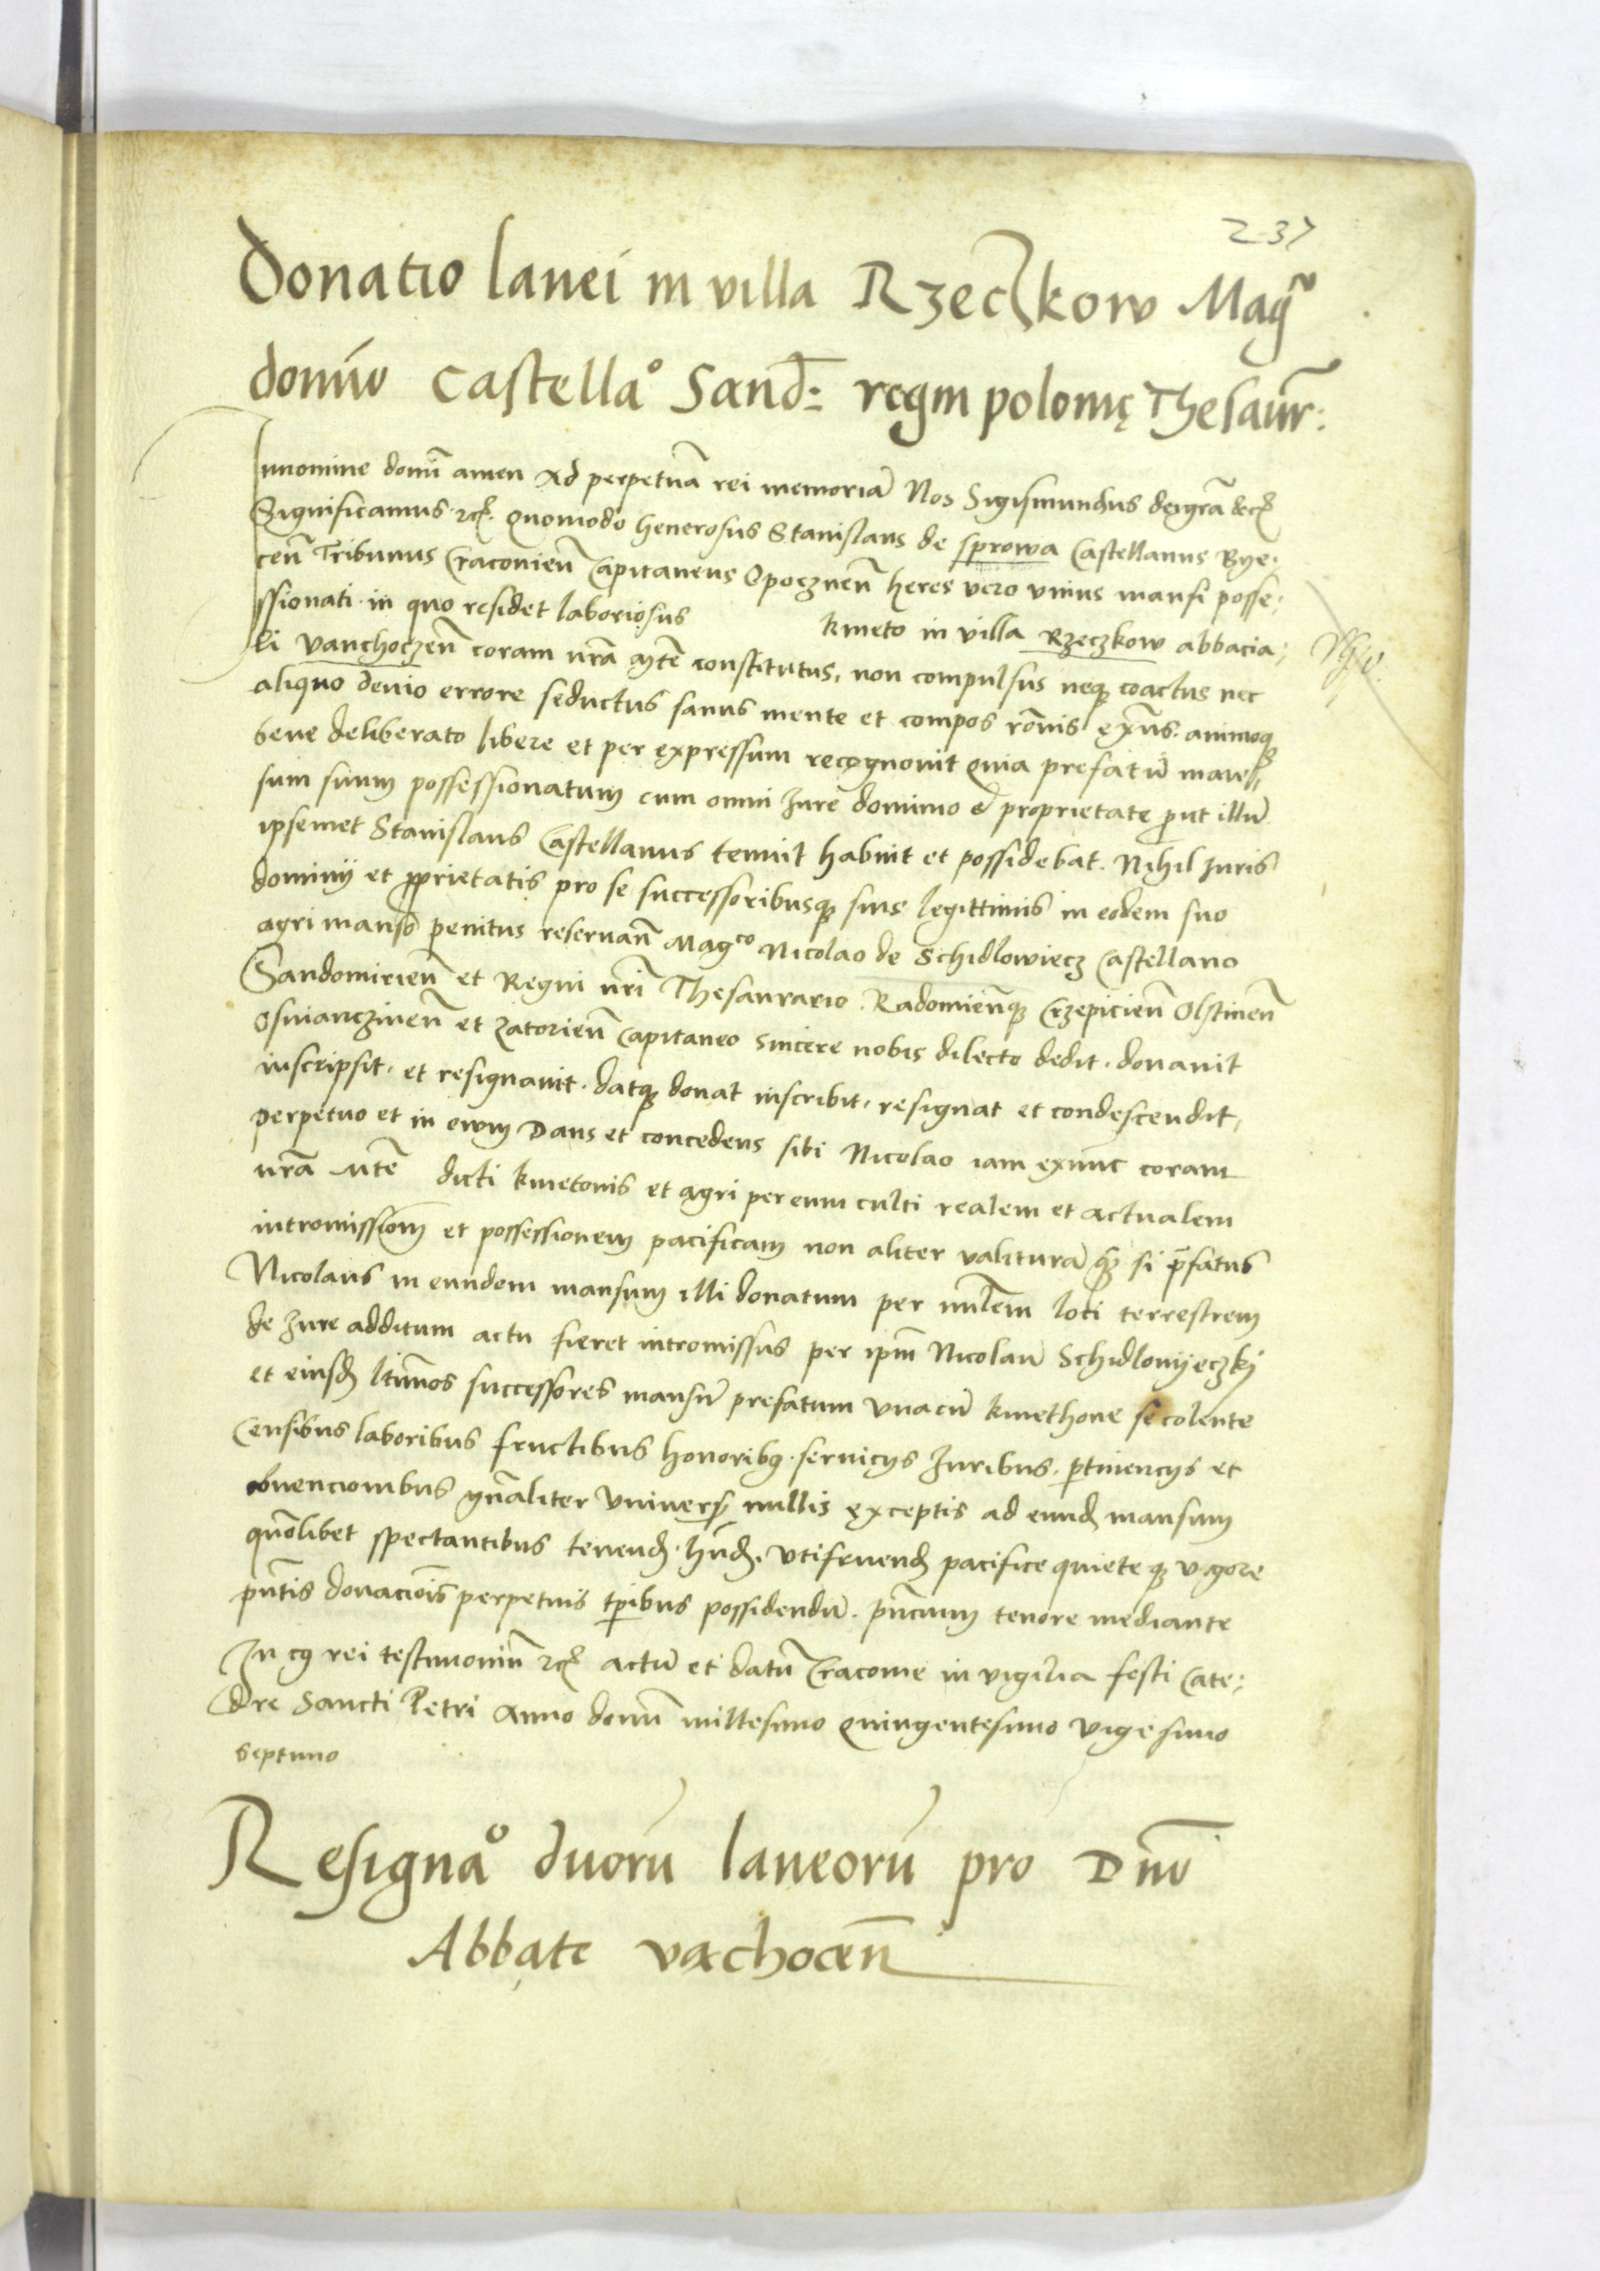 237
Donatio lanei in villa Rzeczkow Mag͠o
domino Castellaº Sand: regni polonię Thesaur:
Innomine domī amen Ad perpetuā rei memoriā Nos Sigismundus deigrā &c̄
Significamus &c̄. Quomodo Generosus Stanislaus de sprowa Castellanus Bye-
cen̄ Tribunus Cracovien̄ Capitaneus Opocznen̄ heres vero vnius mansi posse-
ssionati in quo residet laboriosus kmeto in villa Rzeczkow abbacia-
li vanchoczen̄ coram nr̄a m̄te constitutus, non compulsus neq; coactus nec
aliquo devio errore seductus sanus mente et compos rōnis ęxn̄s. animoq;
bene deliberato libere et per ęxpressum recognovit Quia prefatū man-
sum suum possessionatum cum omni Jure dominio & proprietate prout illū
ipsemet Stanislaus Castellanus tenuit habuit et possidebat. Nihil Juris
dominii et proprietatis pro se successoribusq; suis legittimis in eodem suo
agri manso penitus reservan̄ Mag͠co Nicolao de Schidlowiecz Castellano
Sandomirien̄ et Regni nr̄i Thesaurario Radomienq; Crzepicien̄ Olstinen̄
Osvianczimen̄ et zatorien̄ Capitaneo sincere nobis dilecto dedit. donavit
inscripsit. et resignavit. datq; donat inscribit. resignat et condescendit,
perpetuo et in ewm Dans et concedens sibi Nicolao iam exnunc coram
nr̄a M̄te dicti kmetonis et agri per eum culti realem et actualem
intromissionē et possessionem pacificam non aliter valiturā q̄ si p̄fatus
Nicolaus in eundem mansum illi donatum per mīlem loci terrestrem
de Jure additum actu fieret intromissus per ipm̄ Nicolaū Schidlowyeczky
et eiusd̄ ltīmos successores mansū prefatum vnacū kmethone se colente
Censibus laboribus fructibus honoribꝫ. servicys Juribus. p̱tinencys et
obvencionibus gn̄aliter vnivers̄ nullis ęxceptis ad eund̄ mansum
quōlibet spectantibus tenend̄. hn̄d̄. vtifruend̄ pacifice quieteq; vigore
pn̄tis donaciōis perpetuis tp̄ibus possidendū. pn̄cium tenore mediante
In cꝫ rei testimoniū &c̄ actū et datū Cracovie in vigilia festi Cate-
dre Sancti Petri Anno domī millesimo Quingentesimo vigesimo
septimo
Resignaº duorū laneorū pro Dn̄o
Abbate vachocen̄